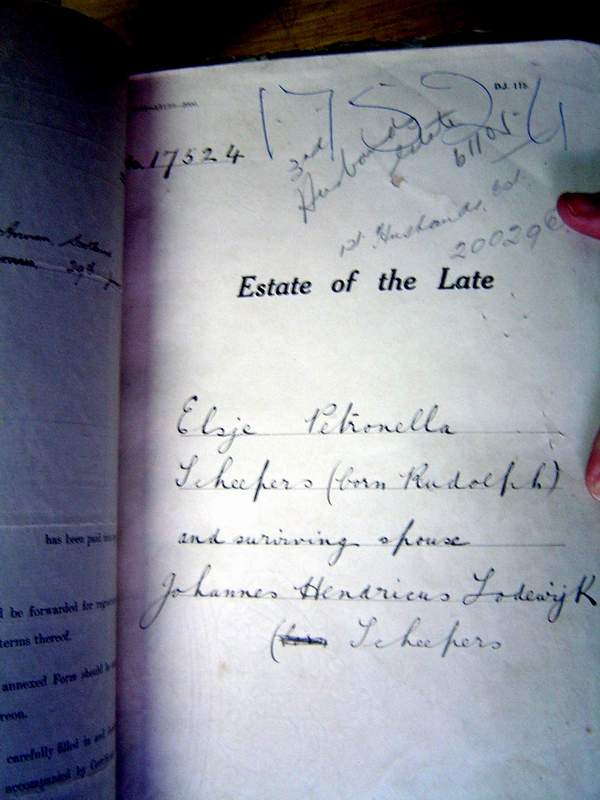 D.J. 115
17524
17524
3rd
Husband's
estate
61105
1st Husbands Est.
20029
Estate of the Late
Elsje Petronella
Scheepers (born Rudolph)
and surviving spouse
Johannes Hendricus Lodewijk
(born Scheepers
29th
has been paid
l be forwarded for
terms thereof.
annexed Form should be
reon.
carefully filled in and
accompanied by